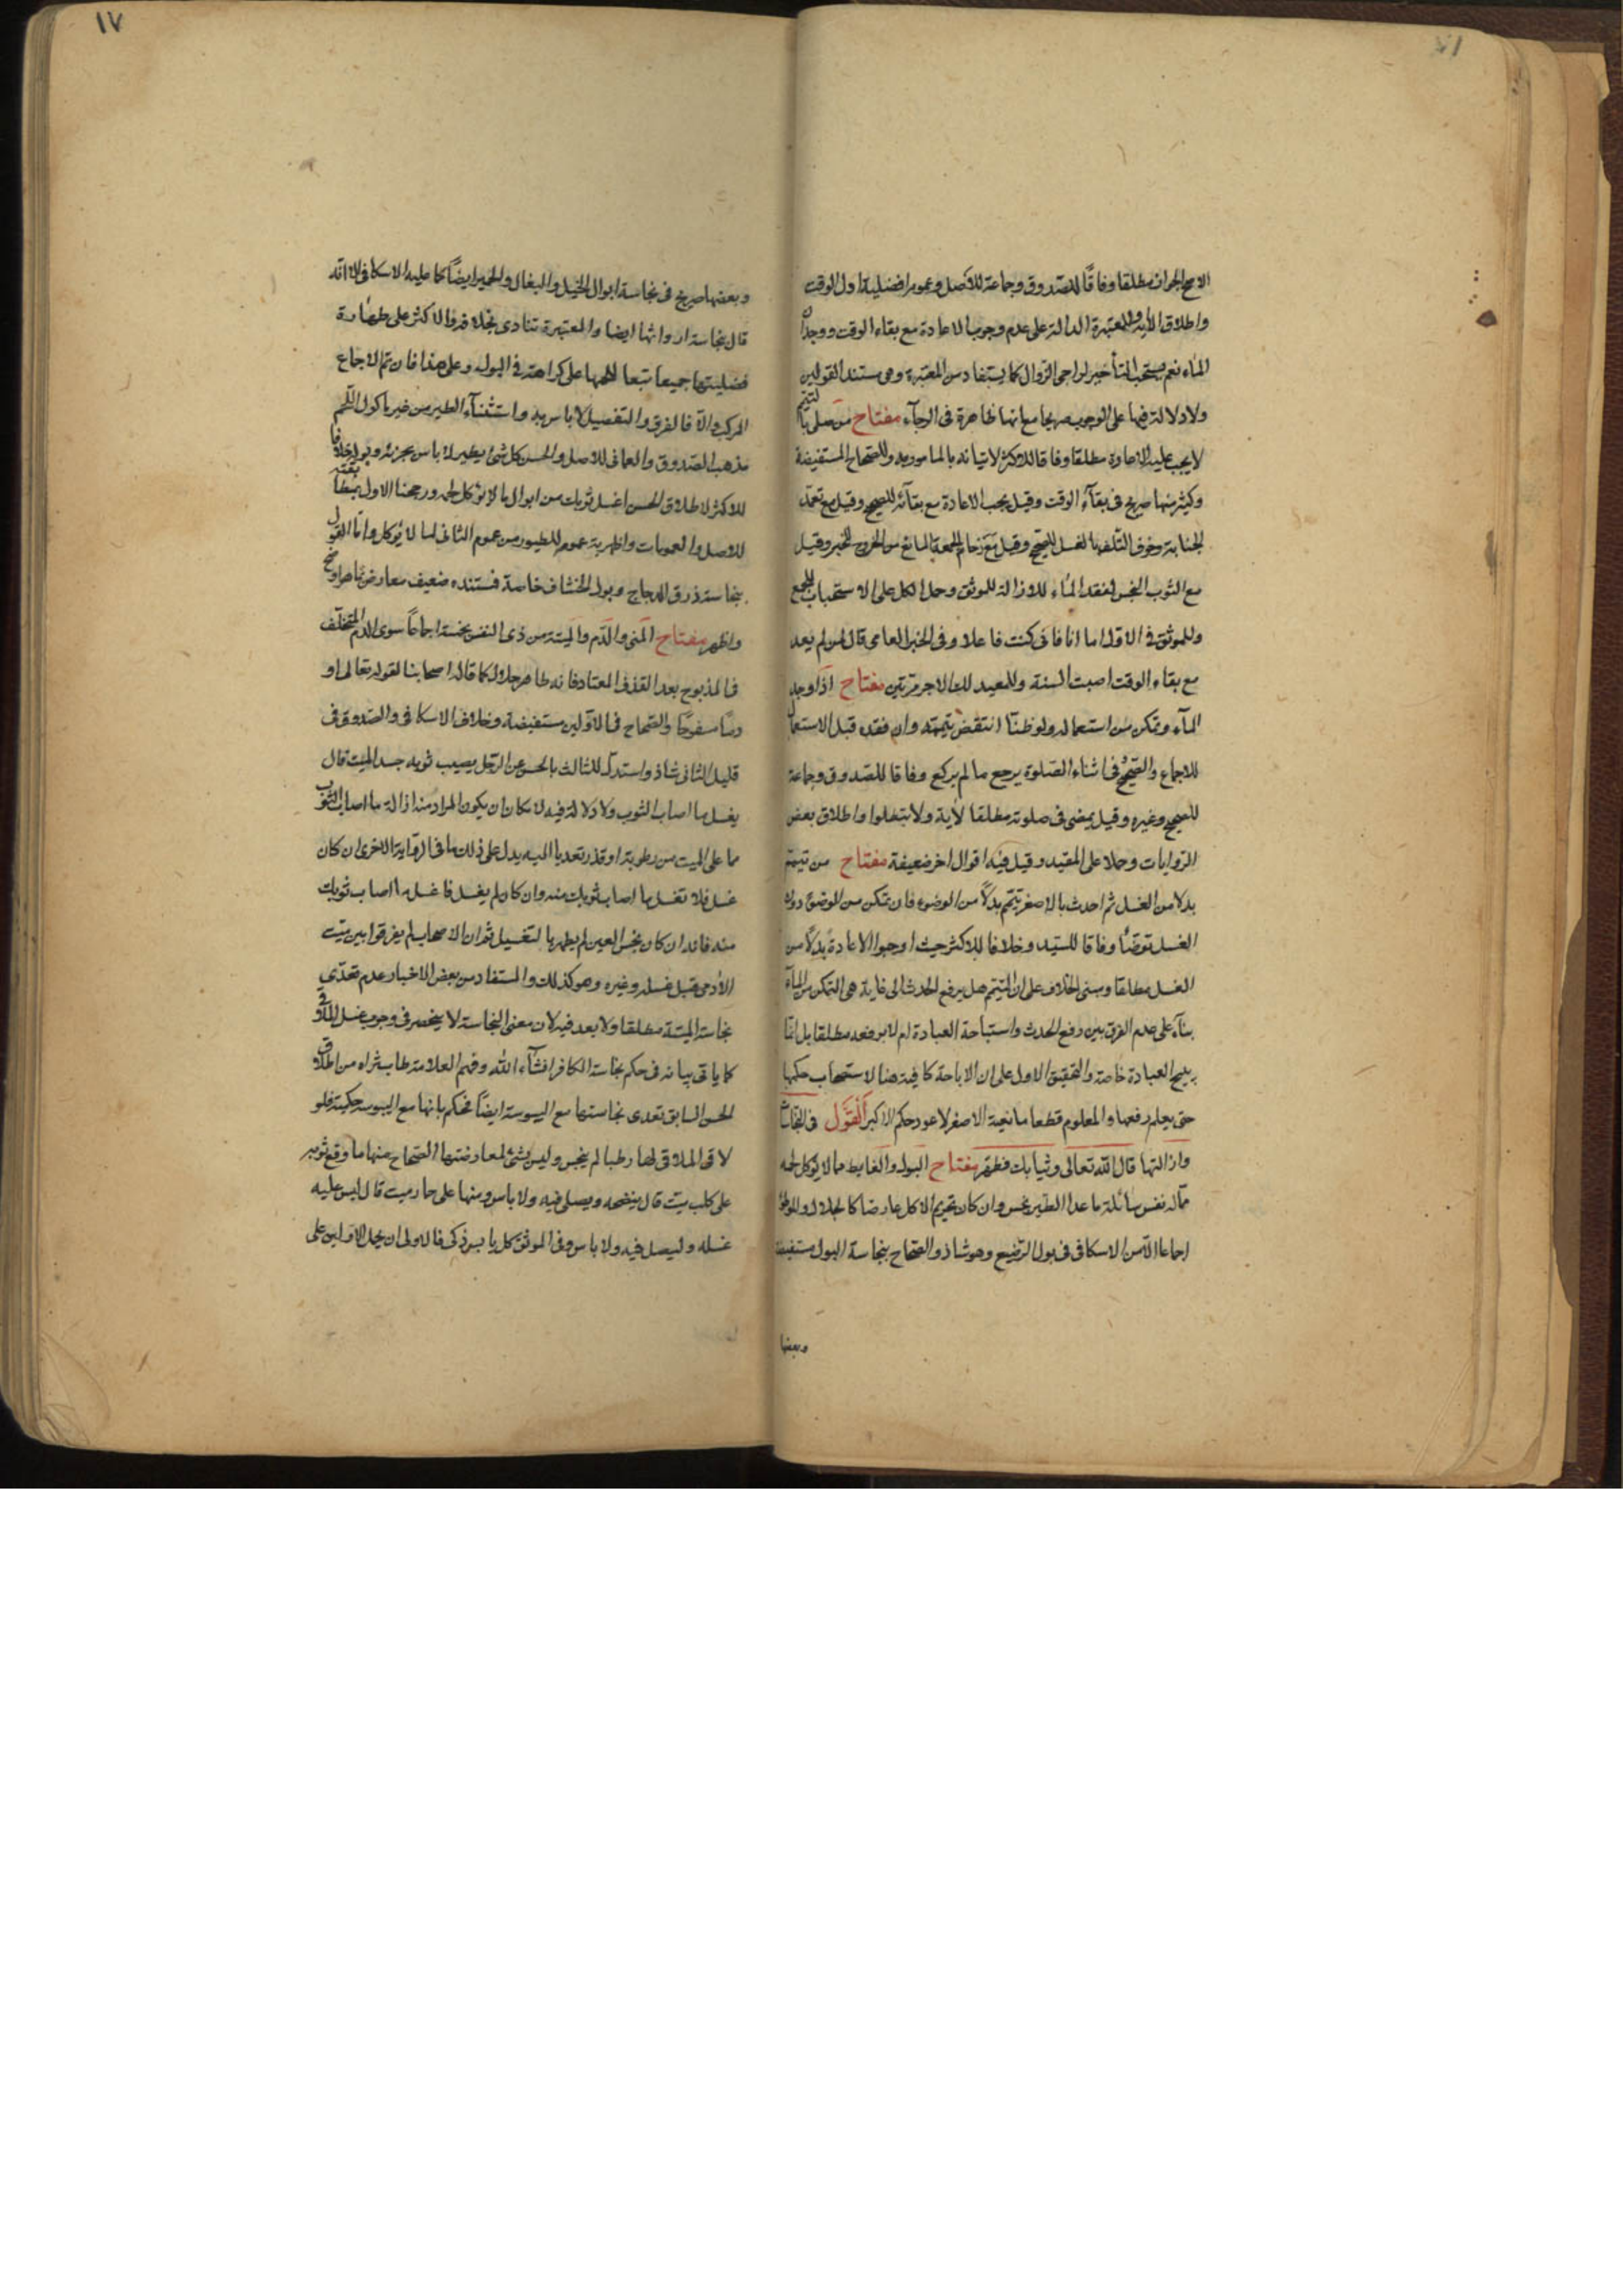 الاصح الجواز مطلقا وفاقًا للصّدوق وجماعة للاصل وعموم افضلية اول الوقت
واطلاق الآية وللمعتبرة الدالة على عدم وجوب الاعادة مع بقاء الوقت ووجدان
الماء نعم يستحب التأخير لراجى الزوال كما يستفاد من المعتبرة وهى مستند القولين
ولا دلالة فيها على الوجوب صريحا مع انها ظاهرة فى الرجآء مفتاح من صلى بالتيمم
لا يجب عليه الاعادة مطلقا وفاقا للاكثر لاتيانه بالمامور به وللصحاح المستفيضة
وكثير منها صريح فى بقآء الوقت وقيل يجب الاعادة مع بقآئه للصحيح وقيل مع تعمد
الجنابة وخوف التلف بالغسل للصحيح وقيل مع زحام الجمعة المانع من الخروج للخبر وقيل
مع الثوب النجس لفقد المآء للازالة للموثق وحمل الكل على الاستحباب للجمع
وللموثق فى الاول اما انا فانى كنت فاعلا وفى الخبر العامى قال لمن لم يعد
مع بقاء الوقت اصبت السنة وللمعيد لك الاجر مرتين مفتاح اذا وجد
المآء وتمكن من استعماله ولو ظنّا انتقض تيممه وان فقده قبل الاستعمال
للاجماع والصحيح وفى اثناء الصلوة يرجع ما لم يركع وفاقا للصدوق وجماعة
للصحيح وغيره وقيل يمضى فى صلوته مطلقا لآية ولا تبطلوا واطلاق بعض
الروايات وحملا على المقيد وقيل فيه اقوال اخر ضعيفة مفتاح من تيمم
بدلا من الغسل ثم احدث بالاصغر تيمم بدلًا من الوضوء فان تمكن من الوضوء دون
الغسل توضّأ وفاقا للسّيد وخلافا للاكثر حيث اوجبوا الاعادة بدلًا من
الغسل مطلقا ومبنى الخلاف على ان التيمم هل يرفع الحدث الى غاية هى التمكن من المآء
بنآء على عدم الفرق بين رفع الحدث واستباحة العبادة ام لا يرفعه مطلقا بل انما
يبيح العبادة خاصة والتحقيق الاول على ان الاباحة كافية هنا لاستصحاب حكمها
حتى يعلم رفعها والمعلوم قطعا مانعية الاصغر لا عود حكم الاكبر اَلْقَوْل فى النجاسات
وازالتها قال اللّه تعالى وثيابك فطهر مفتاح البول والغايط مما لا يؤكل لحمه
ممّا له نفس سائلة ما عدا الطير نجس وان كان تحريم الاكل عارضا كالجلال والموطوء
اجماعا الّا من الاسكافى فى بول الرضيع وهو شاذ والصحاح بنجاسة البول مستفيضة
وبعضها
١٧
وبعضها صريح فى نجاسة ابوال الخيل والبغال والحمير ايضًا كما عليه الاسكافى الّا انّه
قال بنجاسة ارواثها ايضا والمعتبرة تنادى بخلافه والاكثر على طهارة
فضليتها جميعا تبعا للحمها على كراهة فى البول وعلى هذا فان تم الاجماع
المركب والّا فالفرق والتفصيل لا باس به واستثنآء الطير من غير ماكول اللحم
مذهب الصّدوق والعمانى للاصل والحسن كل شئ يطير لا باس بخرئه وبوله خلافا
للاكثر لاطلاق الحسن اغسل ثوبك من ابوال ما لا يؤكل لحمه ورجحنا الاول بمطابقته
للاصل والعمومات واظهرية عموم للطيور من عموم الثانى لما لا يؤكل وامّا القول
بنجاسة ذرق الدجاج وبول الخشّاف خاصة فمستنده ضعيف معارض بما هو اوضح
واظهر مفتاح المنى والدّم والميتة من ذى النفس نجسة اجماعًا سوى الدم المتخلف
فى المذبوح بعد القذف المعتاد فانه طاهر حلال كما قاله اصحابنا لقوله تعالى او
دمًا مسفوحًا والصّحاح فى الاوّلين مستفيضة وخلاف الاسكافى والصّدوق فى
قليل الثانى شاذ واستدل للثالث بالحسن عن الرجل يصيب ثوبه جسد الميت قال
يغسل ما اصاب الثوب ولا دلالة فيه لامكان ان يكون المراد منه ازالة ما اصاب الثوب
مما على الميت من رطوبة او قذر تعديا اليه يدل على ذلك ما فى الرواية الاخرى ان كان
غسل فلا تغسل ما اصاب ثوبك منه وان كان لم يغسل فاغسل ما اصاب ثوبك
منه فانه ان كان نجس العين لم يطهر بالتغسيل ثم ان الاصحاب لم يفرقوا بين ميت
الآدمى قبل غسله وغيره وهو كذلك والمستفاد من بعض الاخبار عدم تعدّى
نجاسة الميتة مطلقا ولا بعد فيه لان معنى النجاسة لا ينحصر فى وجوب غسل الملاقى
كما ياتى بيانه فى حكم نجاسة الكافر انشآء اللّه وفهم العلامة طاب ثراه من اطلاق
الحسن السابق تعدى نجاستها مع اليبوسة ايضًا فحكم بانها مع اليبوسة حكمية فلو
لاقى الملاقى لها رطبا لم ينجس وليس بشئ لمعارضتها الصّحاح منها ما وقع ثوبه
على كلب ميت قال ينضحه ويصلى فيه ولا باس ومنها على حمار ميت قال ليس عليه
غسله وليصل فيه ولا باس وفى الموثق كل يابس ذكى فالاولى ان يحمل الاولين على